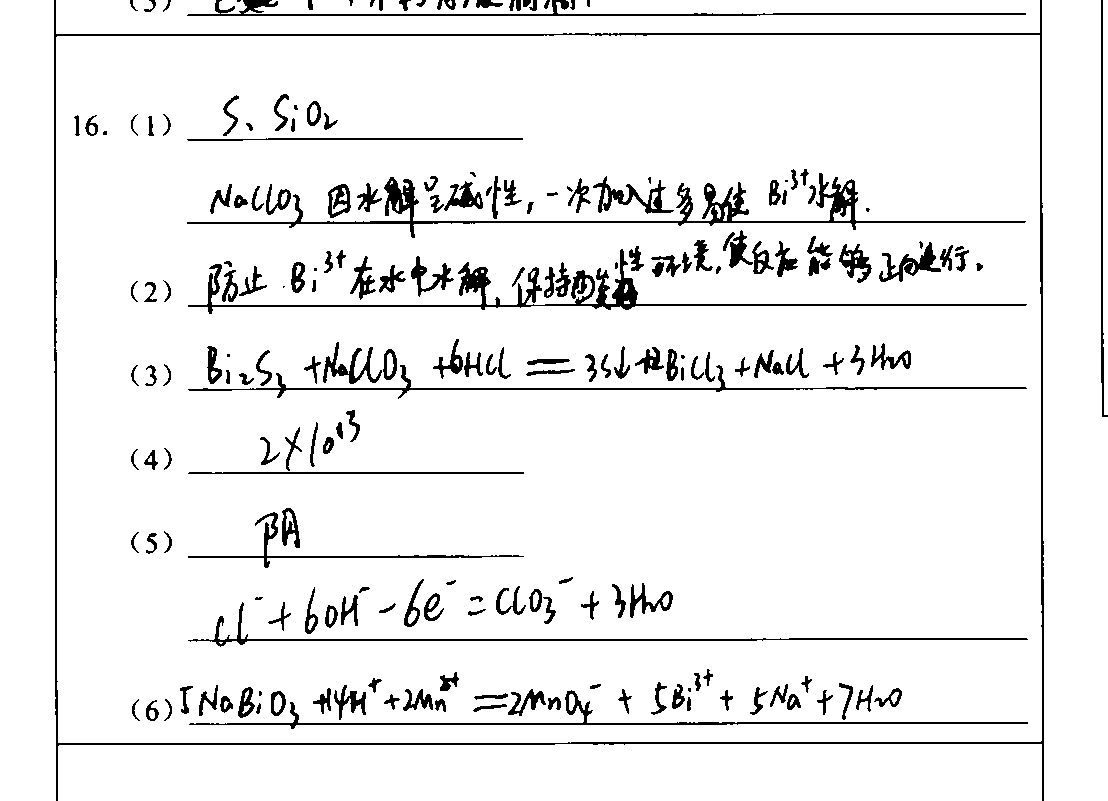 (3)
16. (1) S、SiO₂
NaClO₃ 因水解呈碱性,一次加入过多易使 Bi³⁺水解.
(2) 防止 Bi³⁺在水中水解,保持酸性环境,使反应能够正向进行。
(3) Bi₂S₃ +NaClO₃ +6HCl == 3S↓+2BiCl₃+NaCl +3H₂O
(4) 2×10¹³
(5) 阴
Cl⁻+6OH⁻-6e⁻=ClO₃⁻+3H₂O
(6) 5NaBiO₃+14H⁺+2Mn²⁺==2MnO₄⁻+5Bi³⁺+5Na⁺+7H₂O